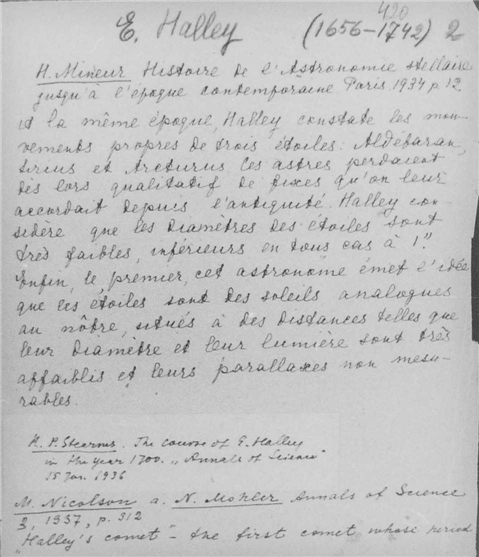 420
E. Halley (1656–1742) 2
H. Mineur Histoire de l'Astronomie stellaire
jusqu'à l'époque contemporaine Paris 1934 p. 12
A la même époque, Halley constate les mou-
vements propres de trois étoiles: Aldébaran,
Sirius et Arcturus. Ces astres perdaient
dès lors qualitatif de fixes qu'on leur
accordait depuis l'antiquité. Halley con
sidère que les diamètres des étoiles sont
très faibles, inférieurs en tous cas à 1".
Enfin, le premier, cet astronome émet l'idée
que les étoiles sont des soleils analogues
au nôtre, situés à des distances telles que
leur diamètre et leur lumière sont très
affaiblis et leurs parallaxes non mesu-
rables.
H. P. Stearns. The course of E. Halley
in the year 1700. „Annals of Science"
15 Jan. 1936
M. Nicolson a. N. Mohler Annals of Science
3, 1937, p. 312
Halley's comet – the first comet whose period